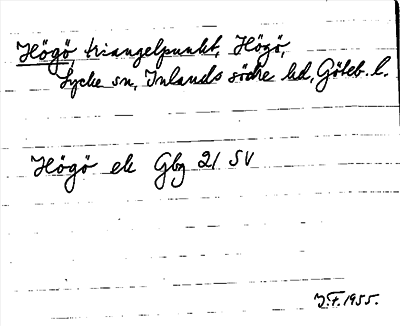 Högö triangelpunkt, Högö,
Lycke sn, Inlands södre hd, Göteb. l.
Högö ek Gbg 21 SV
J.F. 1955.